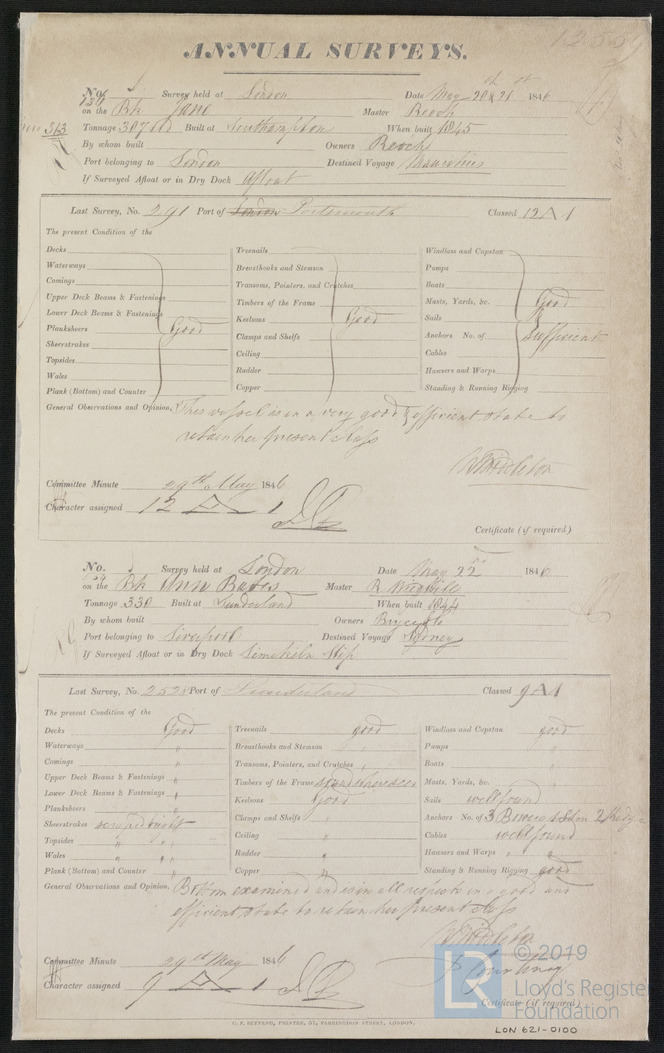 12559
ANNUAL SURVEYS.
No. Survey held at London Date May 20th & 21st 1846
on the Bk Jane Master Reoch
Tonnage 307 Built at Southampton When built 1845
313
By whom built Owners Reoch
Port belonging to London Destined Voyage Mauritius
If Surveyed Afloat or in Dry Dock Afloat
Last Survey, No. 291 Port of London Portsmouth Classed 12 A 1
The present Condition of the
Decks Treenails Windlass and Capstan
Waterways Breasthooks and Stemson Pumps
Comings Transoms, Pointers, and Crutches Boats
Upper Deck Beams & Fastenings Timbers of the Frame Masts, Yards, &c. Good
Lower Deck Beams & Fastenings Keelsons Good Sails &
Planksheers Good Clamps and Shelfs Anchors No. of Sufficient
Sheerstrakes Ceiling Cables
Topsides Rudder Hawsers and Warps
Wales Copper Standing & Running Rigging
Plank (Bottom) and Counter
General Observations and Opinion, This vessel is in a very good & efficient state to
retain her present class
Committee Minute 29th May 1846
Character assigned 12 A 1
Certificate (if required)
No. Survey held at London Date May 22 1846
on the Bk Ann Master R
Tonnage 330 Built at Sunderland When built 1844
By whom built Owners
Port belonging to Liverpool Destined Voyage Sydney
If Surveyed Afloat or in Dry Dock Limekiln Slip
Last Survey, No. 252 Port of Sunderland Classed 9 A 1
The present Condition of the
Decks Good Treenails good Windlass and Capstan good
Waterways " Breasthooks and Stemson Pumps "
Comings " Transoms, Pointers, and Crutches " Boats "
Upper Deck Beams & Fastenings " Timbers of the Frame Masts, Yards, &c. "
Lower Deck Beams & Fastenings " Keelsons Good Sails well found
Planksheers " Clamps and Shelfs " Anchors No. of 3 Bowers 1 Stm 2 Kedge
Sheerstrakes scraped bright Ceiling " Cables well found
Topsides " " " Rudder " Hawsers and Warps " "
Wales " " " Copper " Standing & Running Rigging good
Plank (Bottom) and Counter "
General Observations and Opinion, Bottom examined and is in all respects in a good and
efficient state to retain her present class
Committee Minute 29th May 1846
Character assigned 9 A 1
Certificate (if required)
C. F. SEYFANG, PRINTER, 57, FARRINGDON STREET, LONDON.
© 2019
LR
Lloyd's Register
Foundation
LON 621-0100